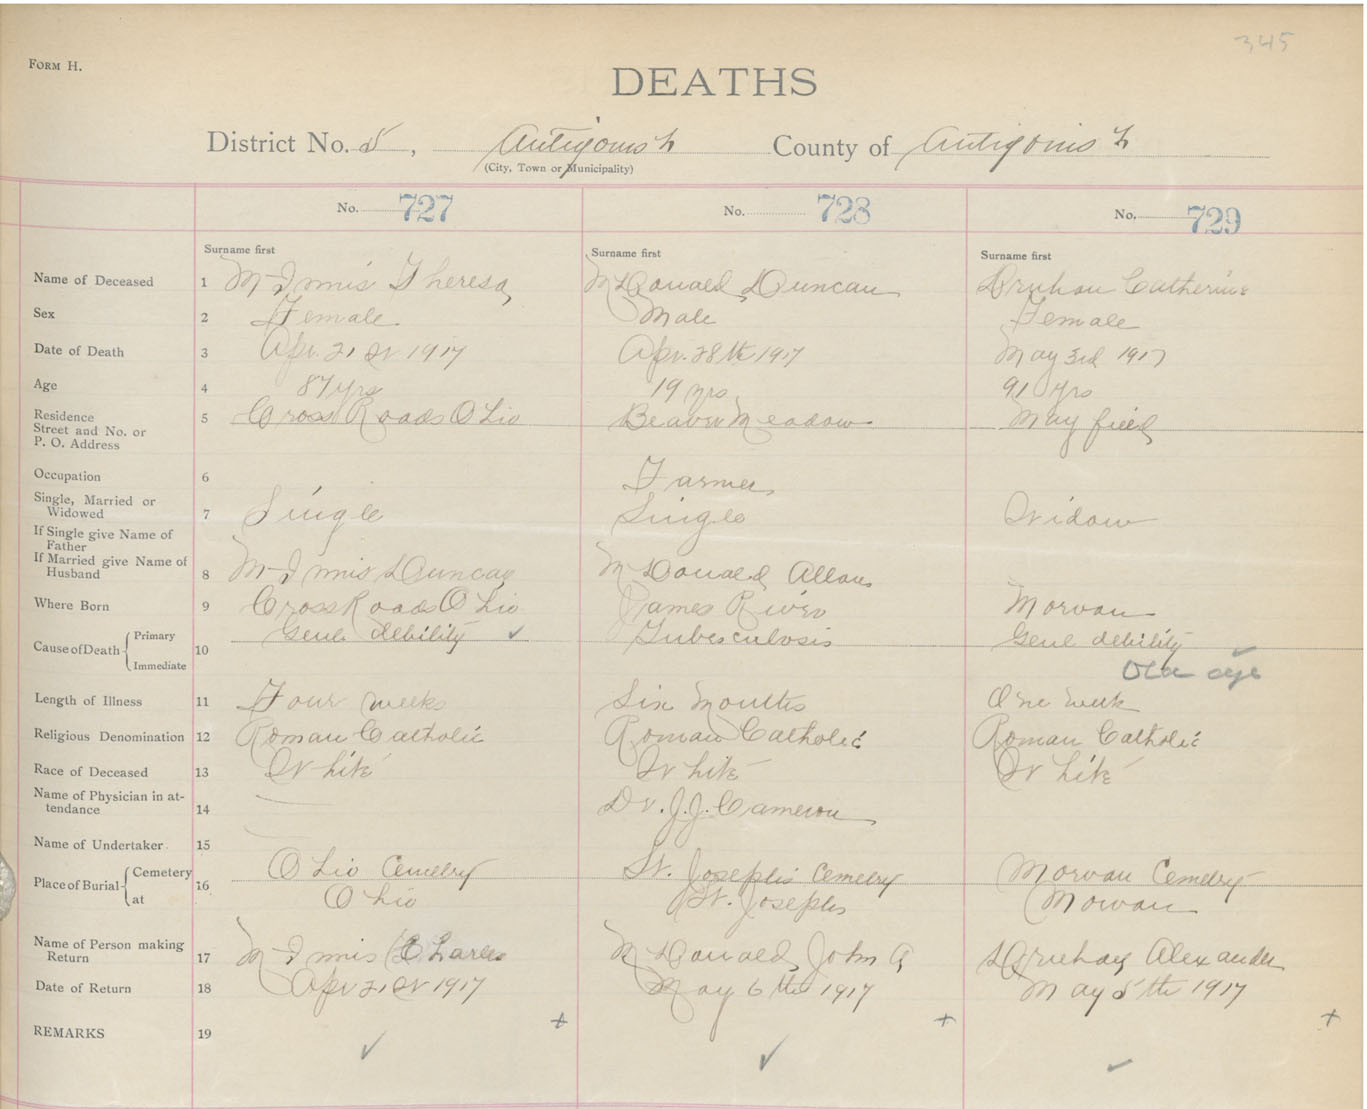 345
FORM H.
DEATHS
District No. 5, Antigonish County of Antigonish
(City, Town or Municipality)
No. 727 No. 728 No. 729
Surname first Surname first Surname first
Name of Deceased 1 McInnis Theresa McDonald, Duncan Druhan Catherine
Sex 2 Female Male Female
Date of Death 3 Apr. 21st 1917 Apr. 28th 1917 May 3rd 1917
Age 4 87 yrs 19 yrs 91 yrs
Residence
Street and No. or 5 Cross Roads Ohio Beaver Meadow May field
P. O. Address
Occupation 6 Farmer
Single, Married or
Widowed 7 Single Single Widow
If Single give Name of
Father
If Married give Name of
Husband 8 McInnis Duncan McDonald Allan
Where Born 9 Cross Roads Ohio James River Morvan
Cause of Death Primary 10 Genl debility ✓ Tuberculosis Genl debility
Immediate Old age ✓
Length of Illness 11 Four weeks Six Months One week
Religious Denomination 12 Roman Catholic Roman Catholic Roman Catholic
Race of Deceased 13 White White White
Name of Physician in at-
tendance 14 Dr. J.J. Cameron
Name of Undertaker 15
Place of Burial Cemetery 16 Ohio Cemetry St. Josephs Cemetry Morvan Cemetry
at Ohio St. Josephs Morvan
Name of Person making
Return 17 McInnis Charles McDonald, John A Druhan Alexander
Date of Return 18 Apr 21st 1917 May 6th 1917 May 5th 1917
REMARKS 19 ✓ + ✓ + ✓ +